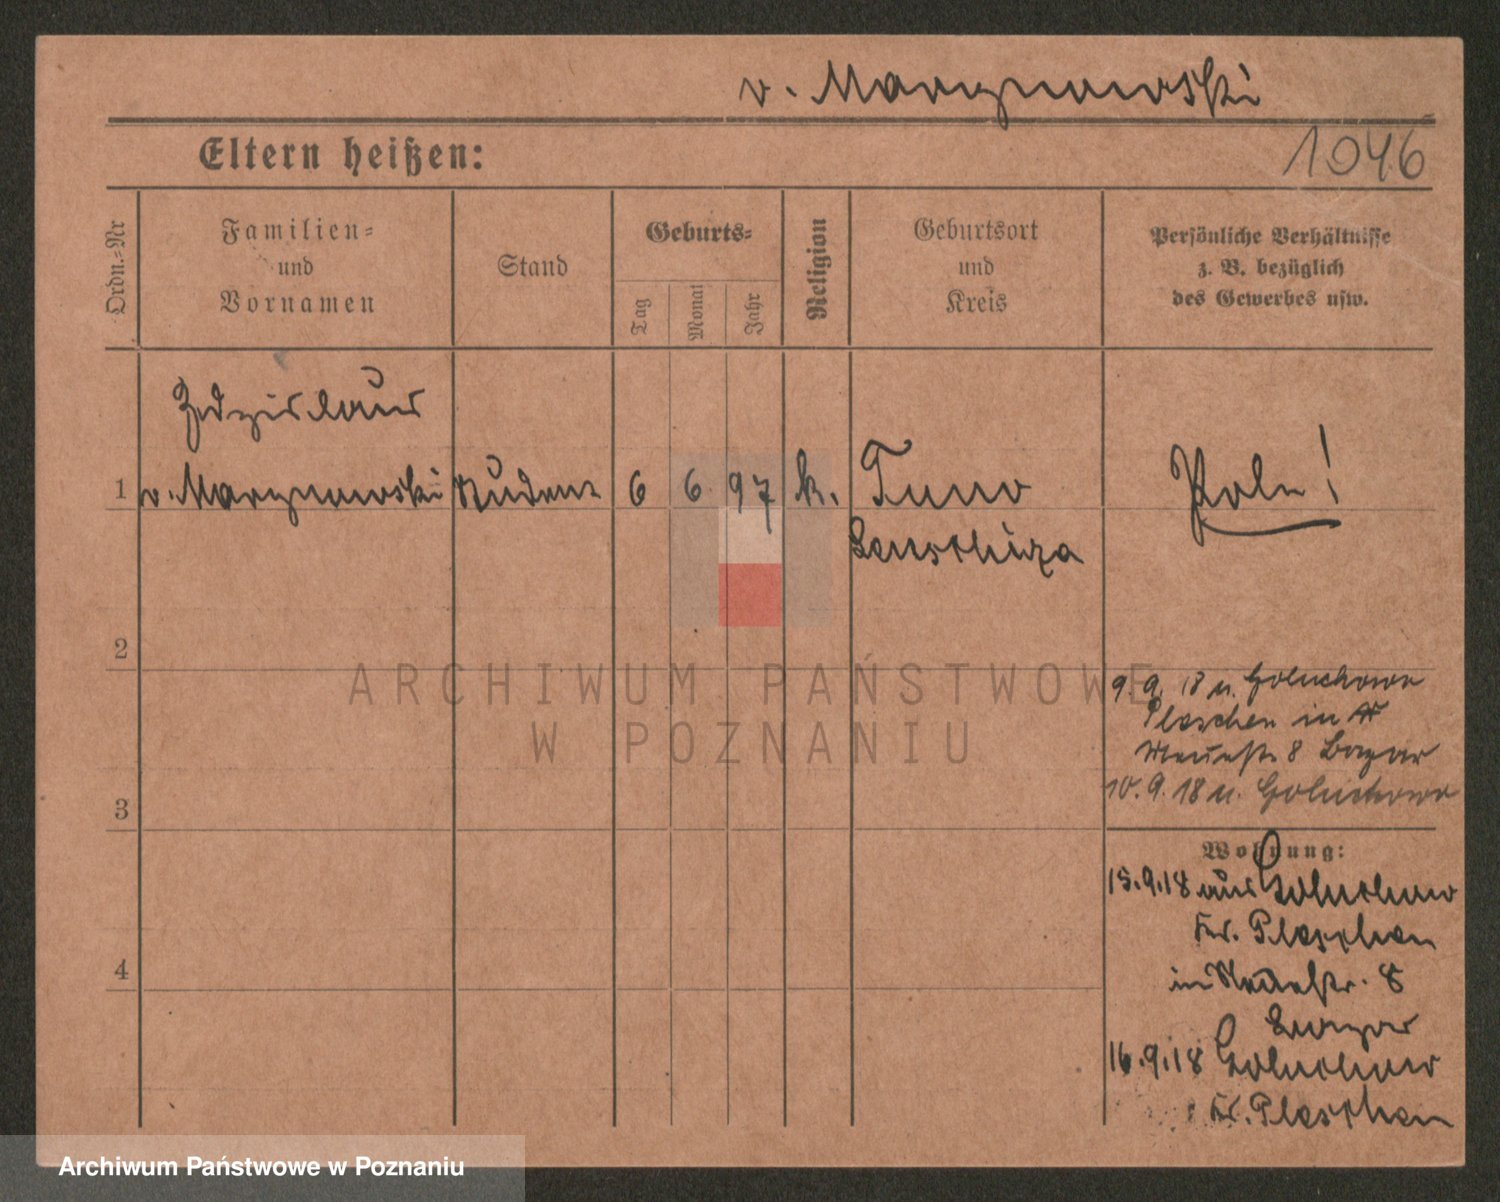 v. Marynowski
Eltern heißen:
1046
Ordn.-Nr
Familien-
und
Vornamen
Stand
Geburts-
Tag
Monat
Jahr
Religion
Geburtsort
und
Kreis
Persönliche Verhältnisse
z. B. bezüglich
des Gewerbes usw.
Zdzislaus
1 v. Marynowski Student 6 6 97 k. Tuno Pole!
2
9. 9. 18 n. Goluchowo
Pleschen in
Neuestr. 8 Bazar
10. 9. 18 n. Goluchowo
3
Wohnung:
15.9.18 aus Goluchow
Kr. Pleschen
in Neuestr. 8
Bazar
4
16.9.18 Goluchow
Kr. Pleschen
ARCHIWUM PAŃSTWOWE
W POZNANIU
Archiwum Państwowe w Poznaniu